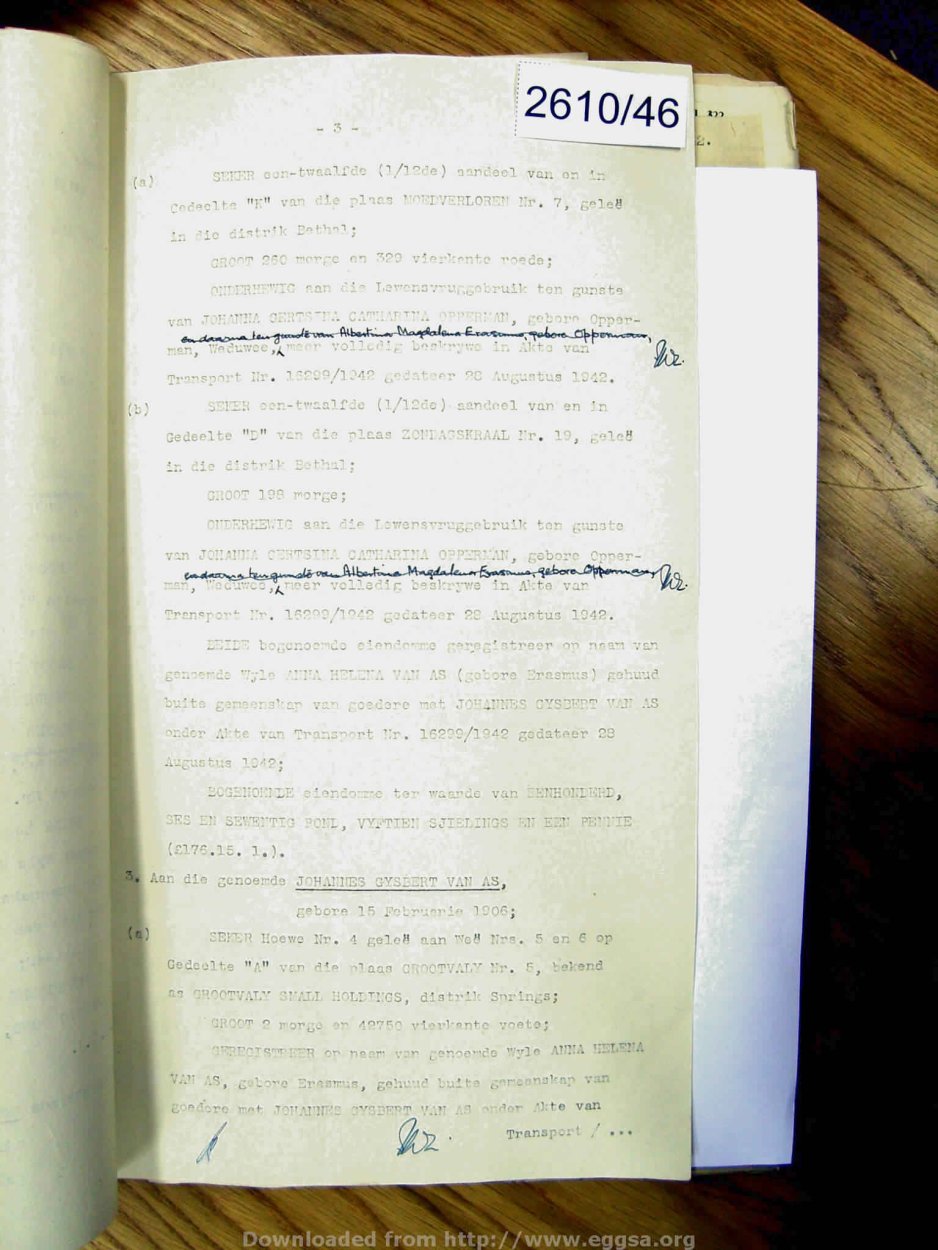 2610/46
- 3 -
(a) SEKER een-twaalfde (1/12de) aandeel van en in
Gedeelte "K" van die plaas MOEDVERLOREN Nr. 7, geleë
in die distrik Bethal;
GROOT 260 morge en 329 vierkante roede;
ONDERHEWIG aan die Lewensvruggebruik ten gunste
van JOHANNA GERTSINA CATHARINA OPPERMAN, gebore Opper-
en daarna ten gunste van Albertina Magdalena Erasmus, gebore Opperman,
man, Weduwee, meer volledig beskrywe in Akte van
Transport Nr. 16299/1942 gedateer 28 Augustus 1942.
(b) SEKER een-twaalfde (1/12de) aandeel van en in
Gedeelte "D" van die plaas ZONDAGSKRAAL Nr. 19, geleë
in die distrik Bethal;
GROOT 198 morge;
ONDERHEWIG aan die Lewensvruggebruik ten gunste
van JOHANNA GERTSINA CATHARINA OPPERMAN, gebore Opper-
en daarna ten gunste van Albertina Magdalena Erasmus, gebore Opperman,
man, Weduwee, meer volledig beskrywe in Akte van
Transport Nr. 16299/1942 gedateer 28 Augustus 1942.
BEIDE bogenoemde eiendomme geregistreer op naam van
genoemde Wyle ANNA HELENA VAN AS (gebore Erasmus) gehuud
buite gemeenskap van goedere met JOHANNES GYSBERT VAN AS
onder Akte van Transport Nr. 16299/1942 gedateer 28
Augustus 1942;
BOGENOEMDE eiendomme ter waarde van EENHONDERD,
SES EN SEWENTIG POND, VYFTIEN SJIELINGS EN EEN PENNIE
(£176.15. 1.).
3. Aan die genoemde JOHANNES GYSBERT VAN AS,
gebore 15 Februarie 1906;
(a) SEKER Hoewe Nr. 4 geleë aan Weë Nrs. 5 en 6 op
Gedeelte "A" van die plaas GROOTVALY Nr. 5, bekend
as GROOTVALY SMALL HOLDINGS, distrik Springs;
GROOT 2 morge en 42750 vierkante voete;
GEREGISTREER op naam van genoemde Wyle ANNA HELENA
VAN AS, gebore Erasmus, gehuud buite gemeenskap van
goedere met JOHANNES GYSBERT VAN AS onder Akte van
Transport / ...
Downloaded from http://www.eggsa.org